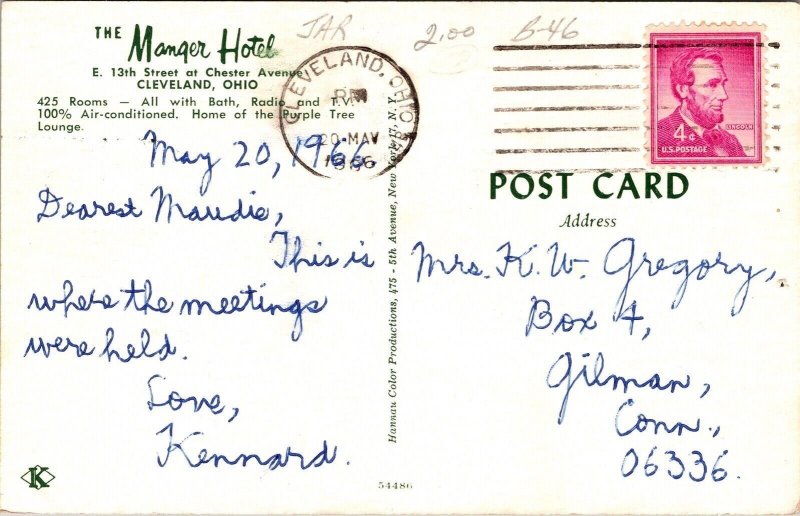 THE Manger Hotel
E. 13th Street at Chester Avenue
CLEVELAND, OHIO
425 Rooms — All with Bath, Radio and T.V.
100% Air-conditioned. Home of the Purple Tree
Lounge.
JAR
2.00
B-46
CLEVELAND, OHIO
PM
20 MAY
1966
LINCOLN
4¢
U.S. POSTAGE
May 20, 1966.
Dearest Maudie,
This is
where the meetings
were held.
Love,
Kennard.
Hannau Color Productions, 475 - 5th Avenue, New York 17, N. Y.
POST CARD
Address
Mrs. K. W. Gregory,
Box 4,
Gilman,
Conn.,
06336.
K
54486